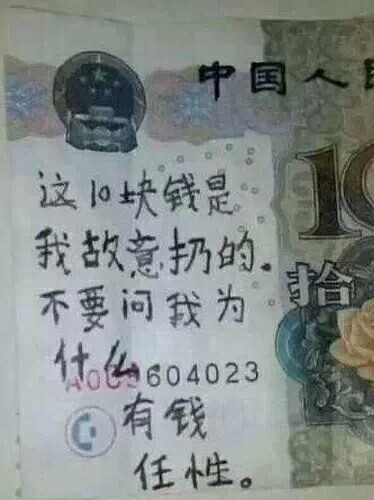 中国人民
10
拾
这10块钱是
我故意扔的.
不要问我为
什么
604023
有钱
任性。